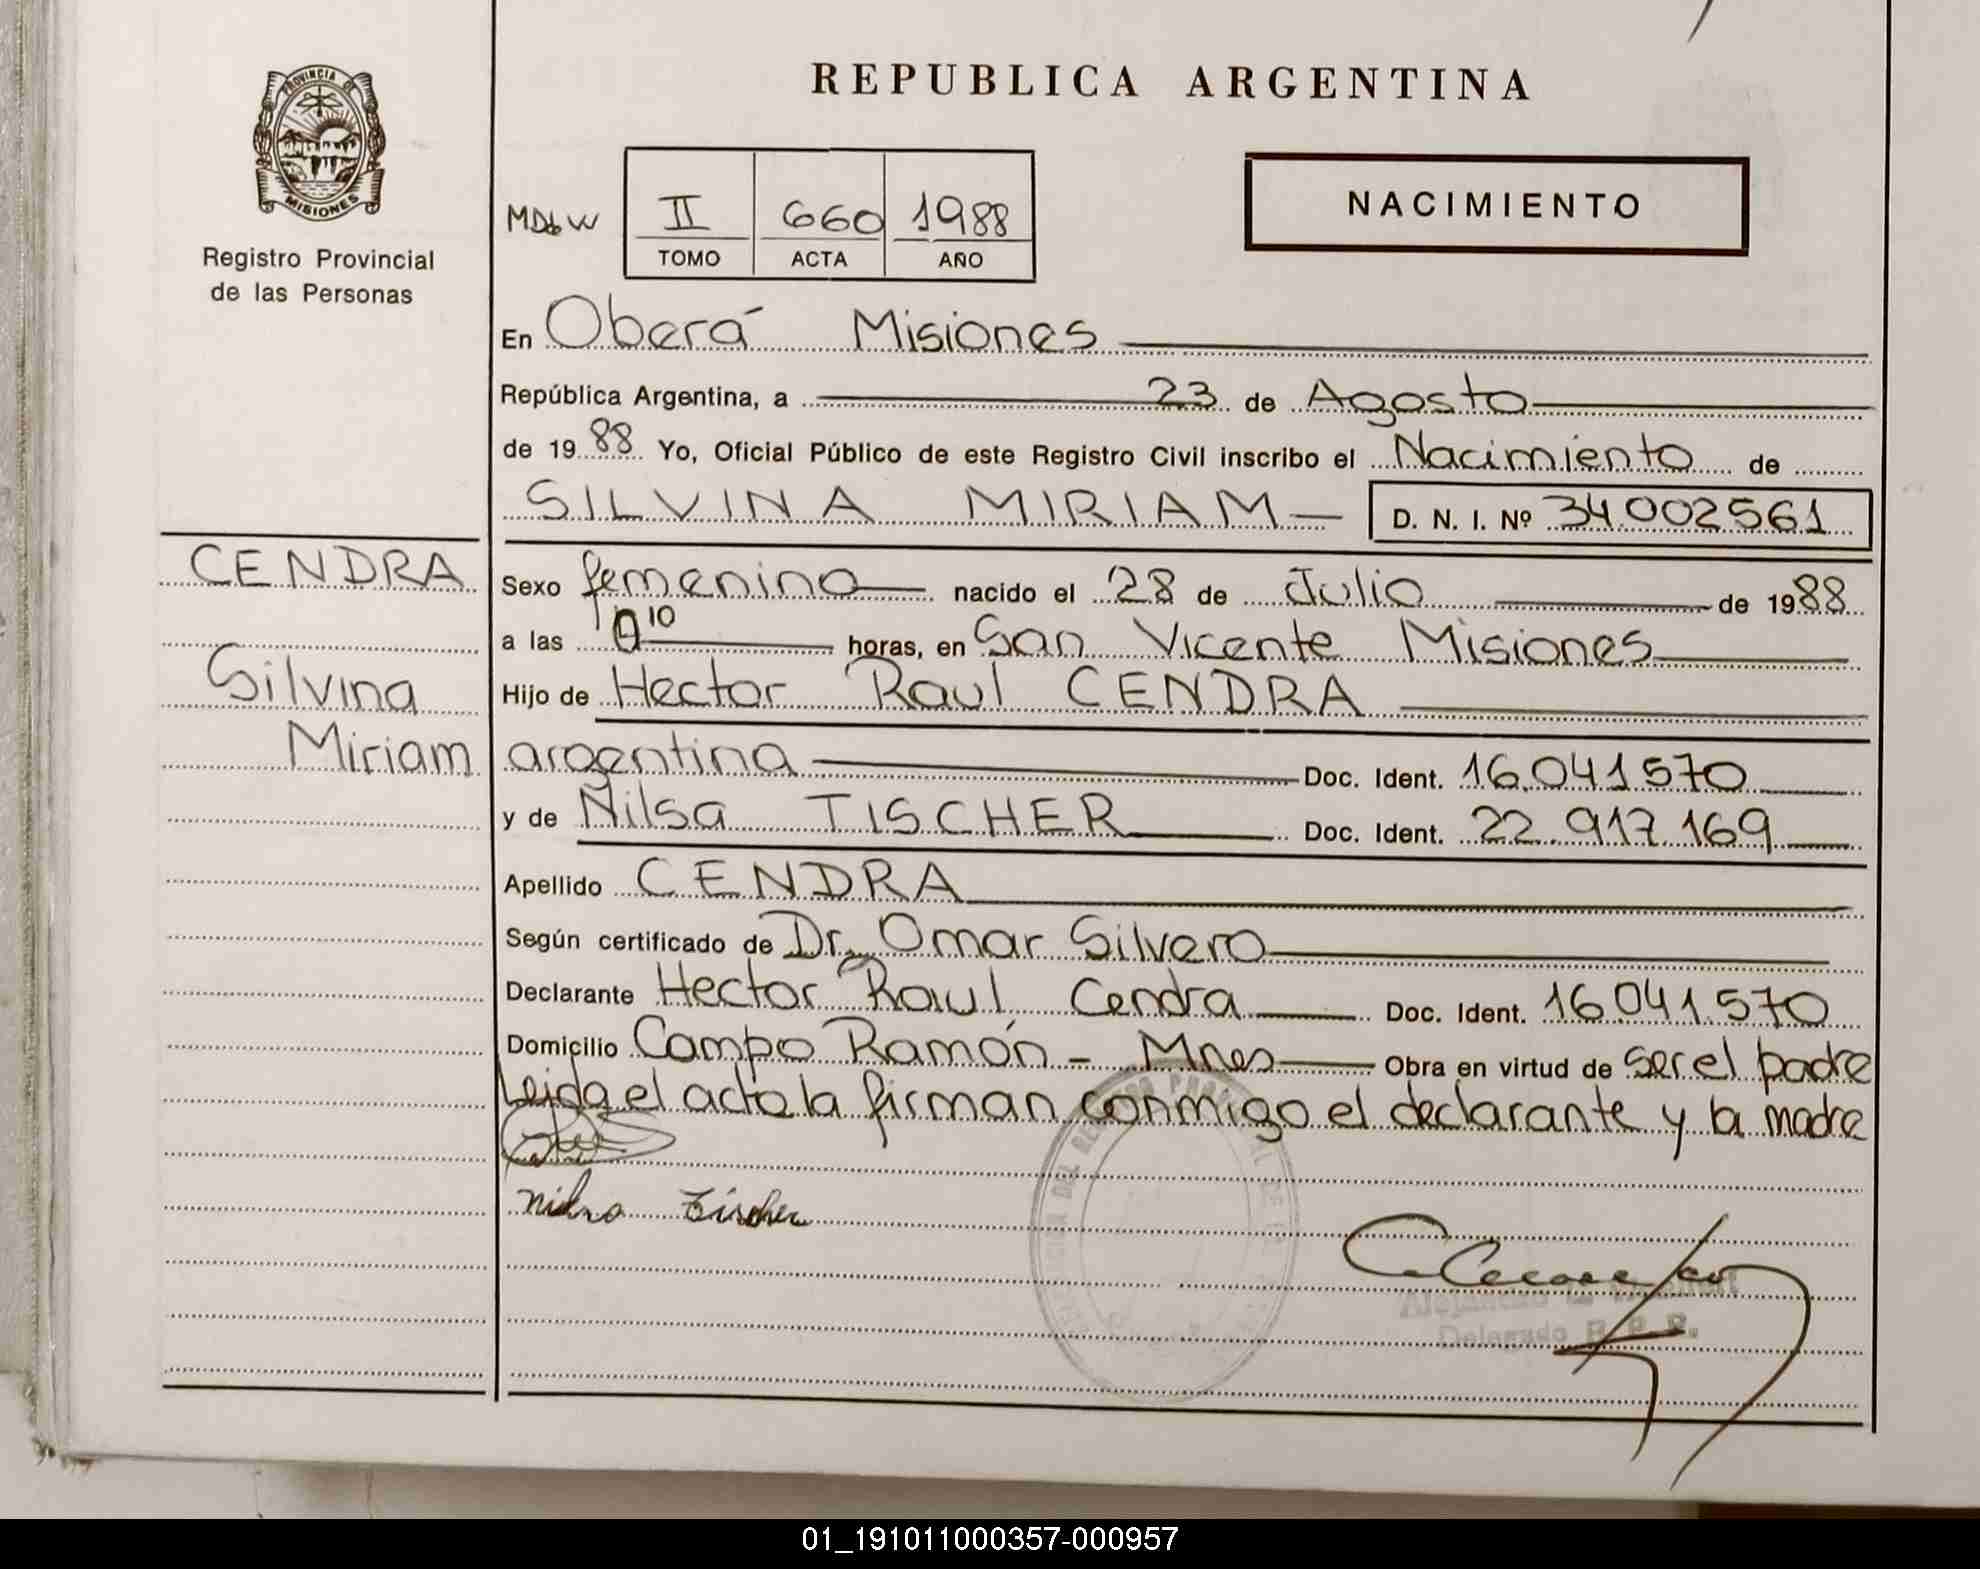 REPUBLICA ARGENTINA
PROVINCIA DE
MISIONES
Registro Provincial
de las Personas
II 660 1988
TOMO ACTA AÑO
NACIMIENTO
En Oberá Misiones
República Argentina, a 23 de Agosto
de 1988 Yo, Oficial Público de este Registro Civil inscribo el Nacimiento de
SILVINA MIRIAM D. N. I. Nº 34002561
CENDRA
Silvina
Miriam
Sexo femenino nacido el 28 de Julio de 1988
a las horas, en San Vicente Misiones
Hijo de Hector Raul CENDRA
argentina Doc. Ident. 16.041570
y de Nilsa TISCHER Doc. Ident. 22.917.169
Apellido CENDRA
Según certificado de Dr. Omar Silvero
Declarante Hector Raul Cendra Doc. Ident. 16.041.570
Domicilio Campo Ramón - Mnes Obra en virtud de ser el padre
Leida el acta la firman conmigo el declarante y la madre
Tischer
Delegado R. P. P.
01_191011000357-000957